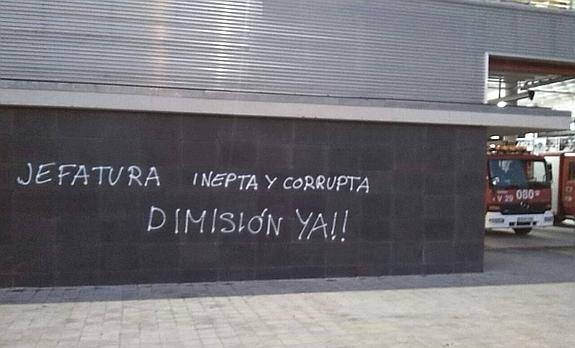 JEFATURA INEPTA Y CORRUPTA
DIMISIÓN YA!!
V 29 080